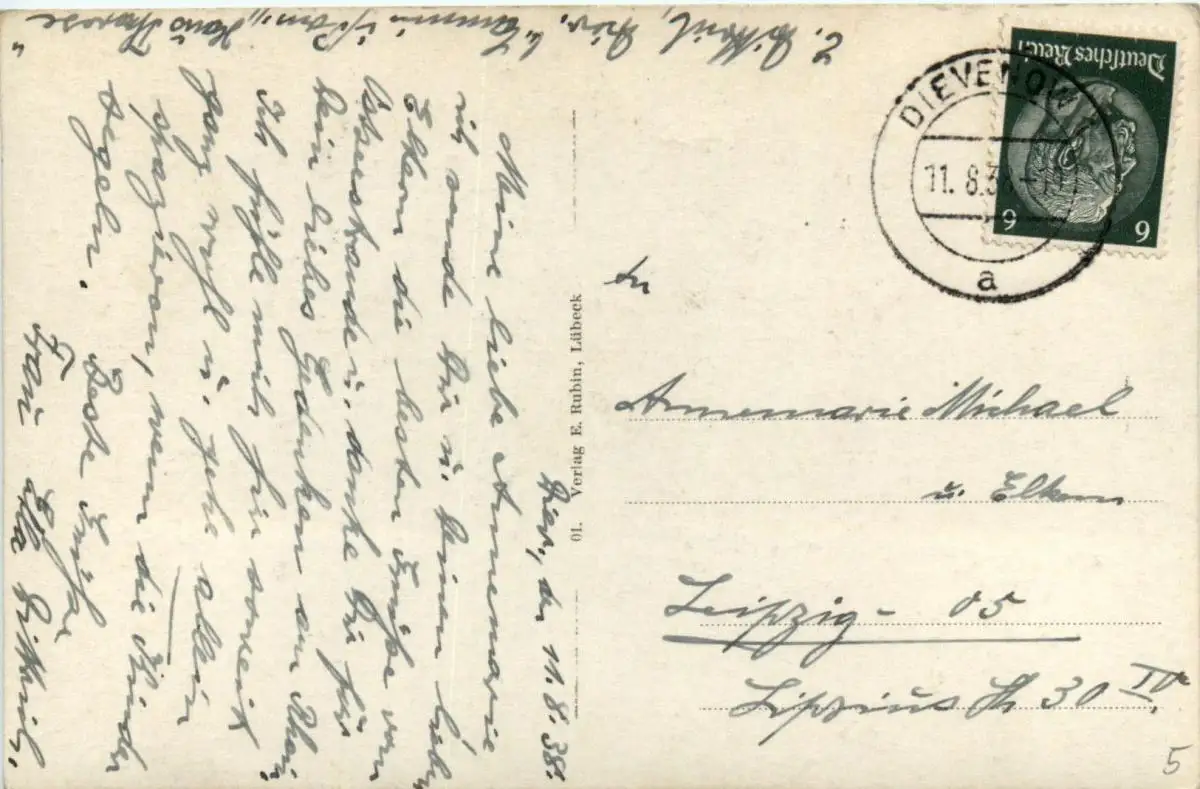 Z. Dittrich, Div. "Cammin i/Pom., Haus Therese"
Diev, den 11.8.38.
Meine liebe Annemarie
ich sende Dir u. Deinen lieben
Eltern die besten Grüße vom
Ostseestrande u. danke Dir für
Dein liebes Gedenken am Rhein.
Ich fühle mich hier soweit
ganz wohl u. gehe allein
spazieren, wenn die Kinder
segeln.
Beste Grüße
Frau Ella Dittrich.
01. Verlag E. Rubin, Lübeck
Deutsches Reich
6 6
DIEVENOW
11.8.38
a
An
Annemarie Michael
u. Eltern
Leipzig - 05
Lipsius Str 30 IV.
5